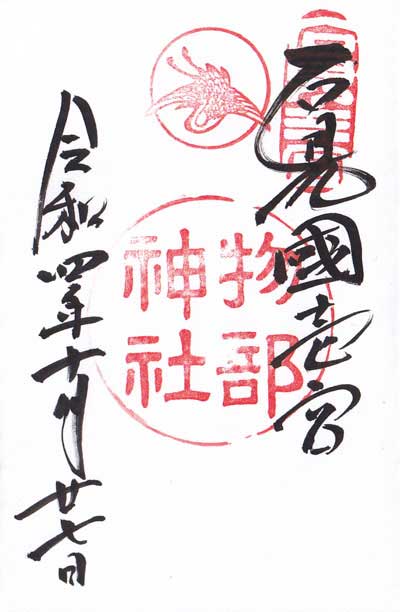 石見國壱宮
物部
神社
令和四年十月廿七日